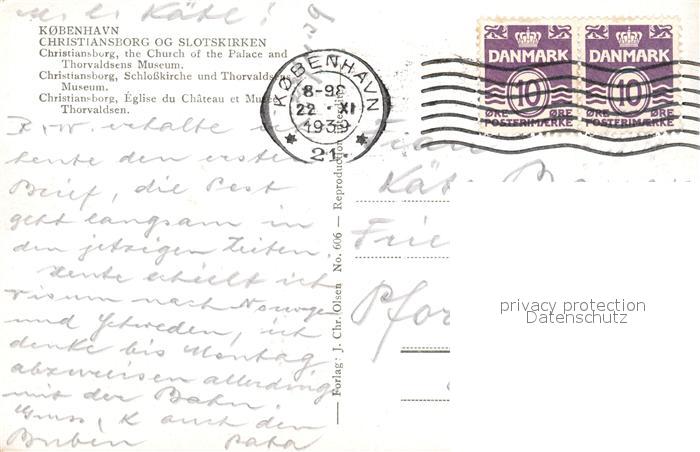 Käte!
KØBENHAVN
CHRISTIANSBORG OG SLOTSKIRKEN
Christiansborg, the Church of the Palace and
Thorvaldsens Museum.
Christiansborg, Schloßkirche und Thorvaldsens
Museum.
Christiansborg, Église du Château et Musée
Thorvaldsen.
erhalte
heute den ersten
Brief, die Post
geht langsam in
den jetzigen Zeiten.
Heute erhielt ich
Visum nach Norwegen
und Schweden, ich
denke bis Montag
abzureisen allerdings
mit der Bahn.
Gruss, K auch den
Buben Papa
KØBENHAVN
8-9E
22 · XI
1939
* 21 *
DANMARK
10
ØRE ØRE
POSTFRIMÆRKE
DANMARK
10
ØRE ØRE
POSTFRIMÆRKE
Forlag: J. Chr. Olsen No. 606 — Reproduction
Frau
Käte
Frie
Pfor
privacy protection
Datenschutz